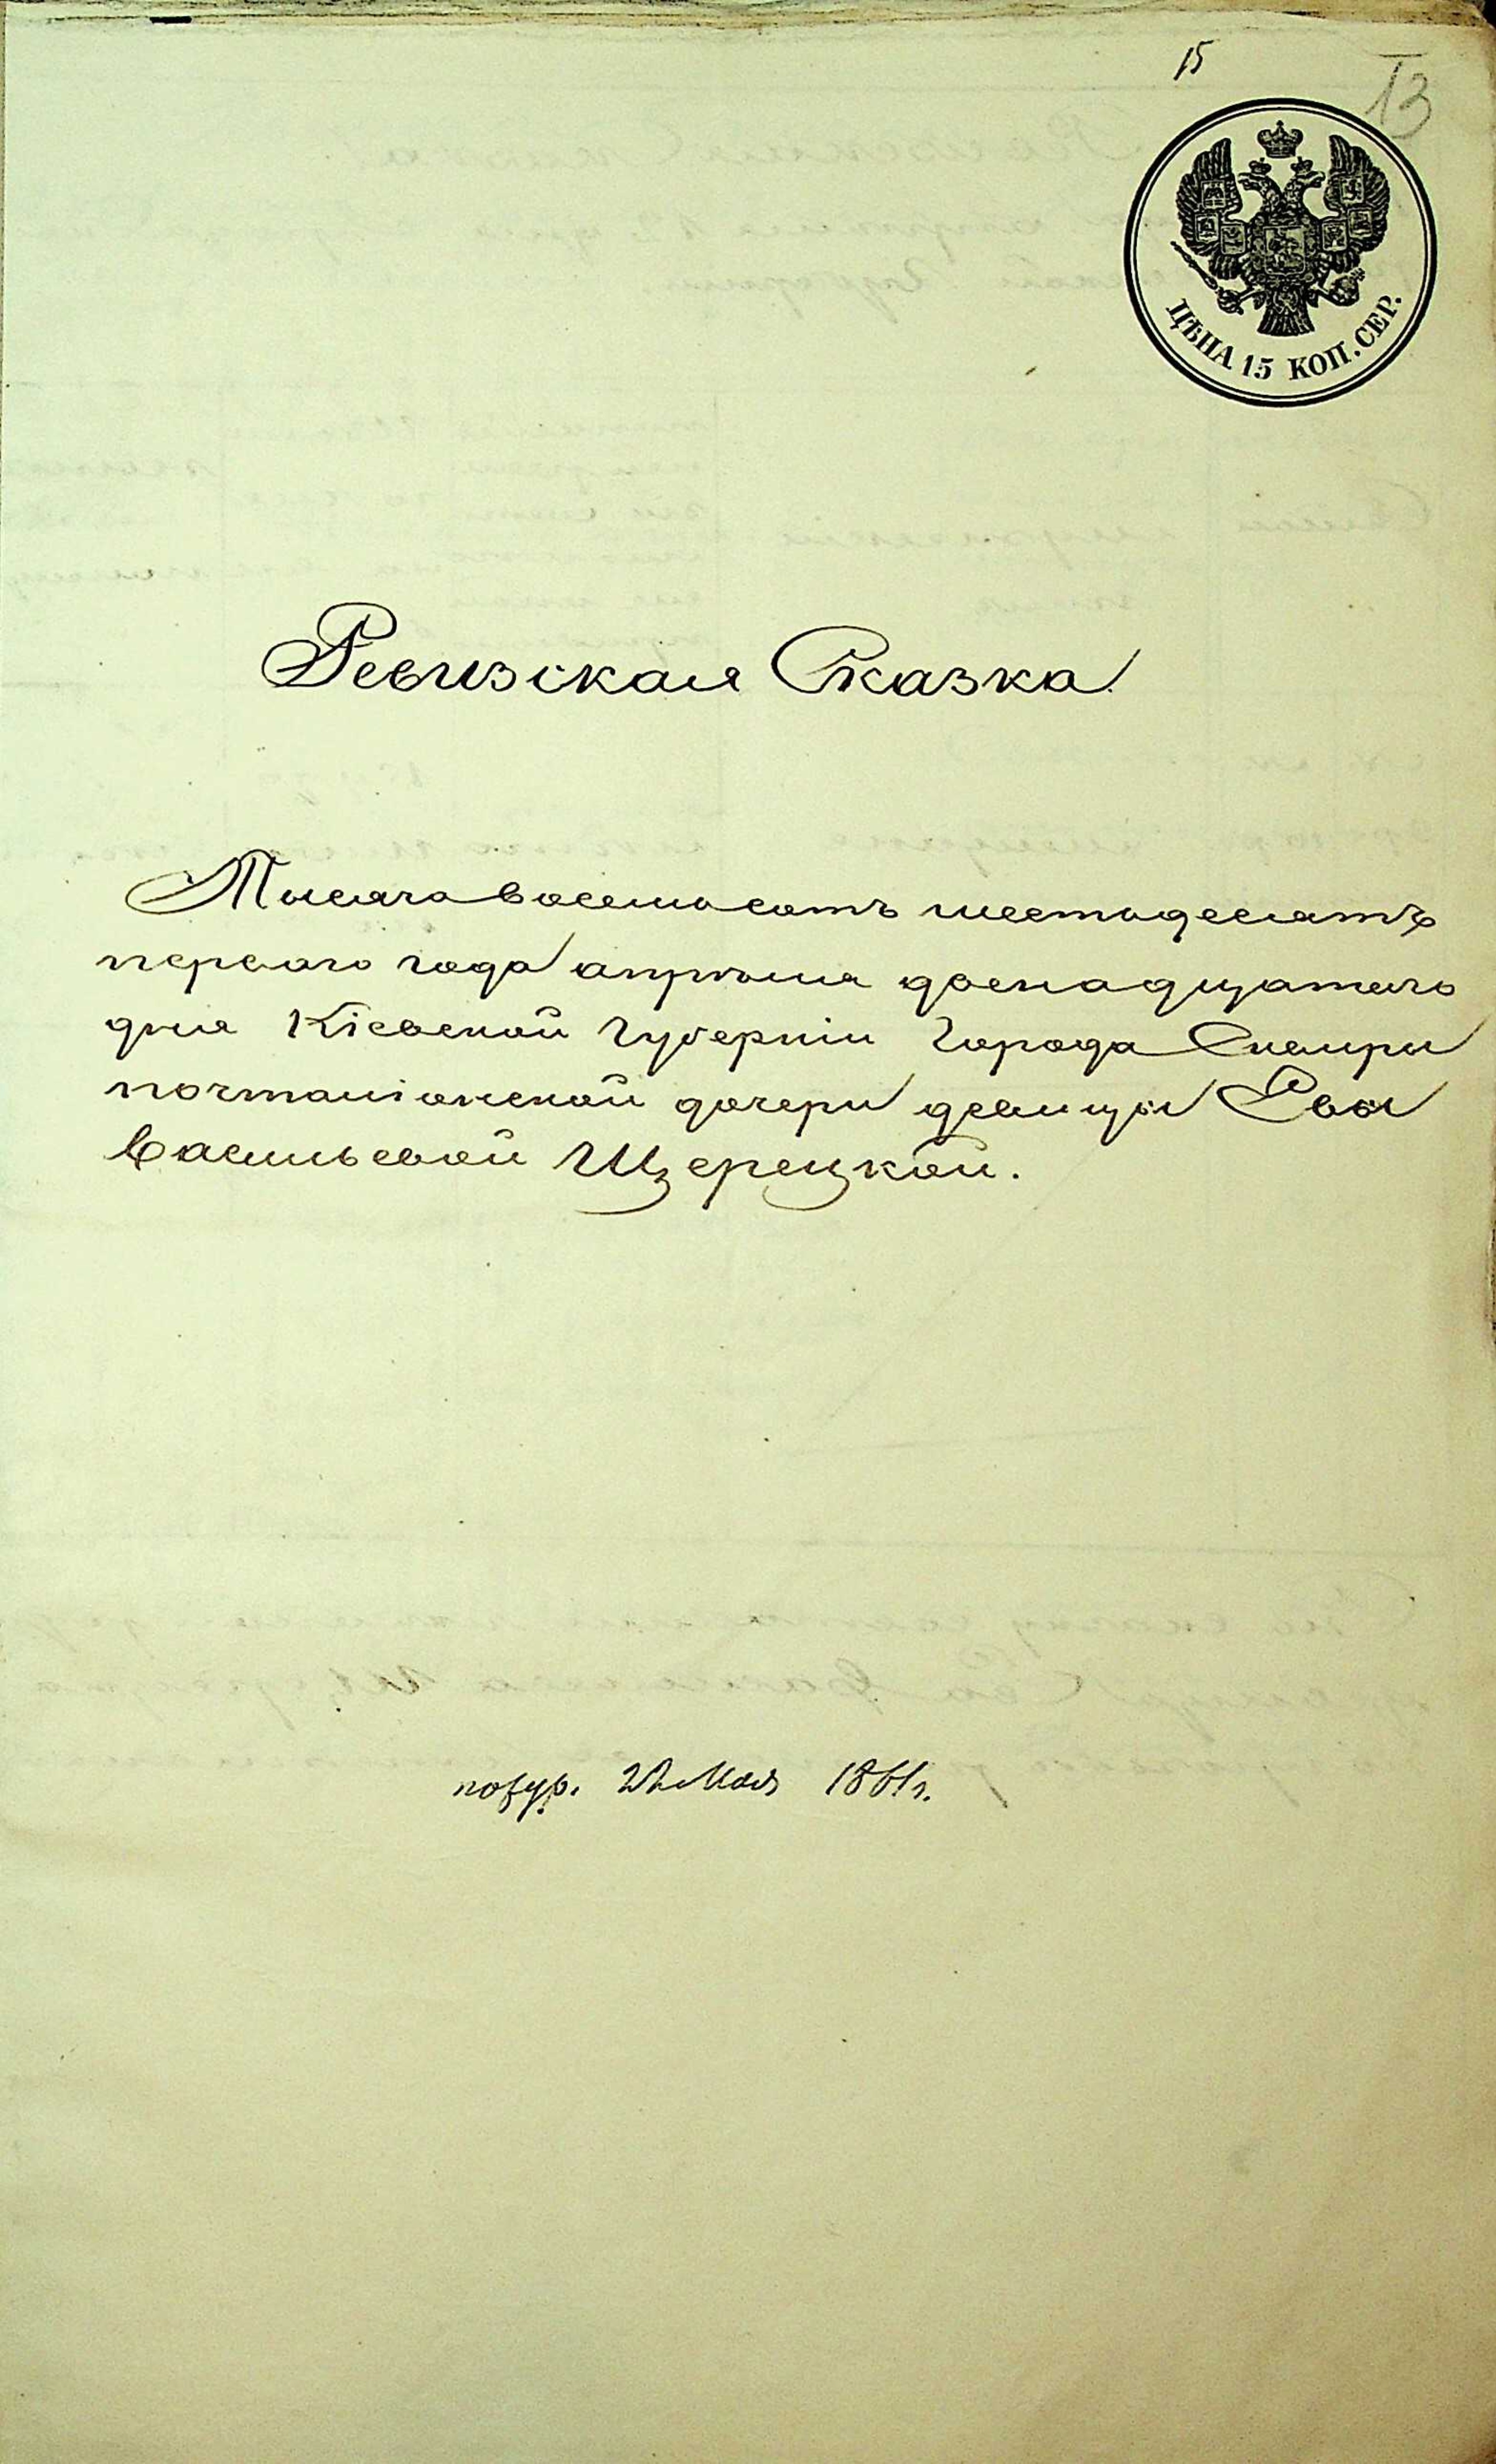 15
13
ЦѢНА 15 КОП. СЕР.
Ревизская Сказка.
Тысяча восемьсотъ шестьдесятъ
первого года апрѣля двенадцатого
дня Кіевской Губерніи Города Сквиры
почталіонской дочери девицы Евы
Васильевой Щерецкой.
Мая 1861 г.